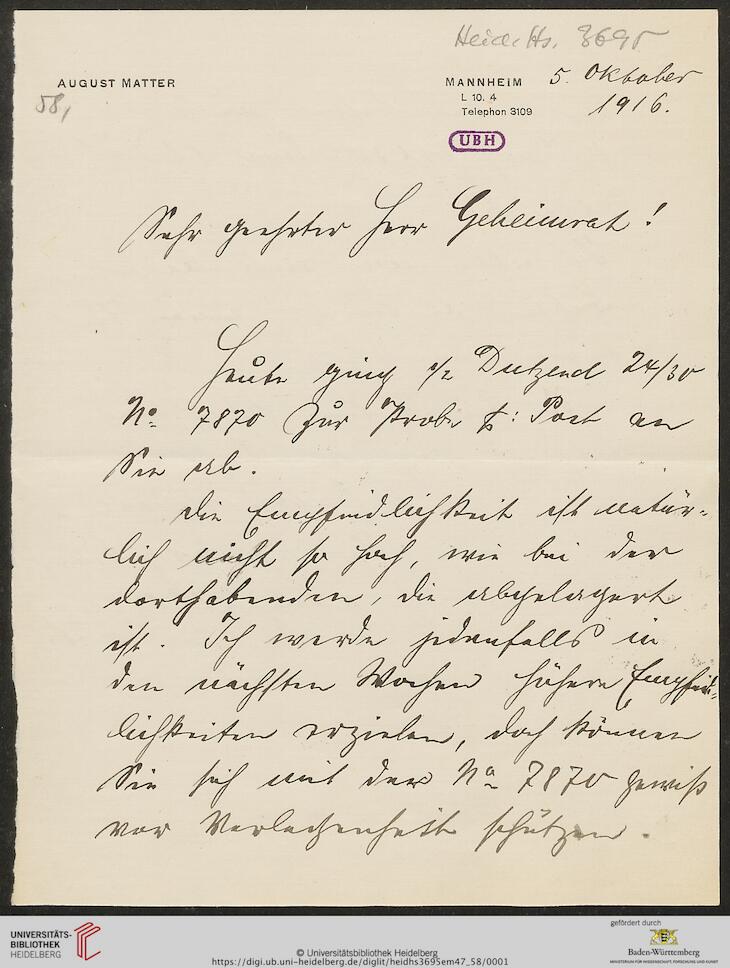 Heid. Hs. 3695
AUGUST MATTER
58,
MANNHEIM
L 10. 4
Telephon 3109
5. Oktober
1916.
UBH
Sehr geehrter Herr Geheimrat!
Heute ging 1/2 Dutzend 24/30
No. 7870 zur Probe p: Post an
Sie ab.
Die Empfindlichkeit ist natür-
lich nicht so hoch, wie bei der
dorthabenden, die abgelagert
ist. Ich werde jedenfalls in
den nächsten Wochen höhere Empfind-
lichkeiten erzielen, doch können
Sie sich mit der No 7870 gewiß
vor Verlegenheit schützen.
UNIVERSITÄTS-
BIBLIOTHEK
HEIDELBERG
© Universitätsbibliothek Heidelberg
https://digi.ub.uni-heidelberg.de/diglit/heidhs3695em47_58/0001
gefördert durch
Baden-Württemberg
MINISTERIUM FÜR WISSENSCHAFT, FORSCHUNG UND KUNST